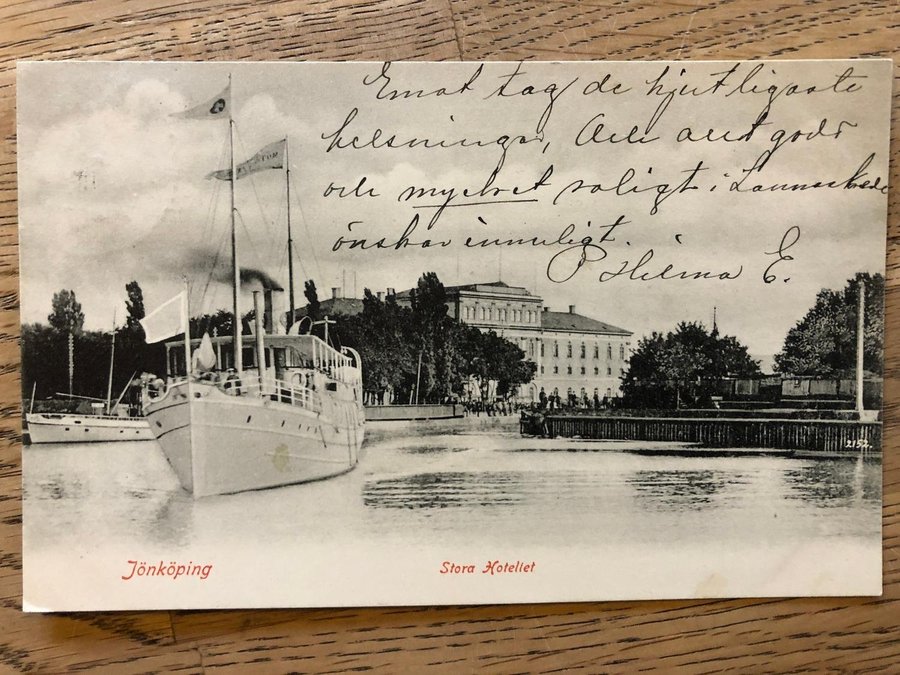 Emottag de hjertligaste
helsningar, Och allt godt
och mycket roligt i Lannaskede
önskar innerligt.
Hilma E.
2152
Jönköping
Stora Hotellet